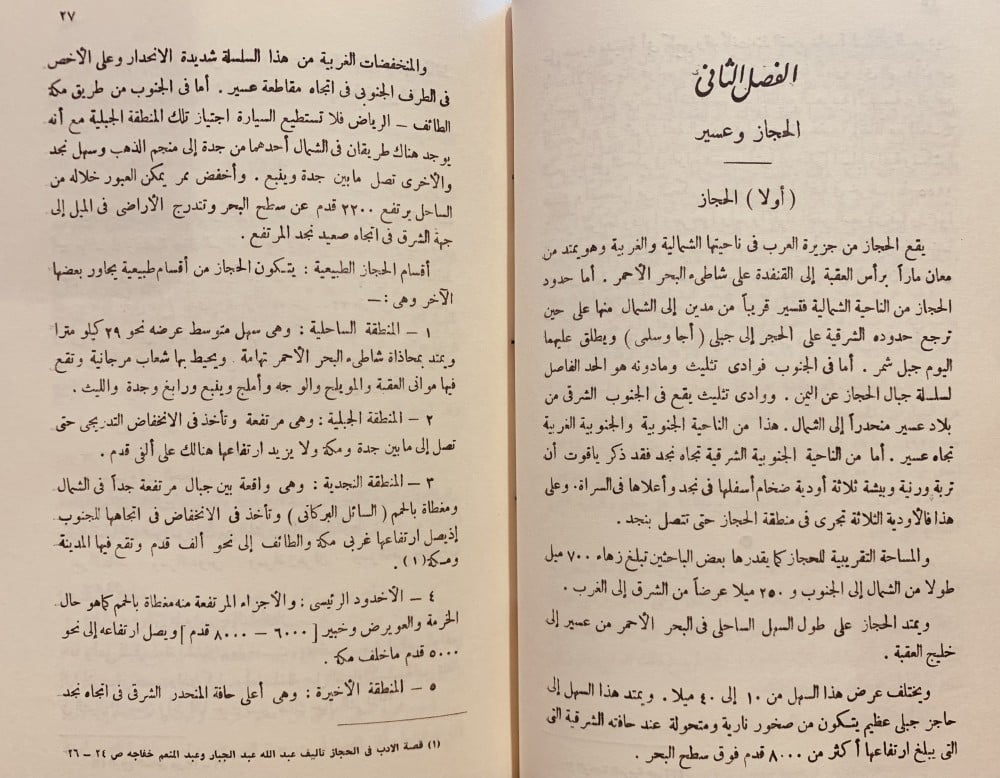 الفصل الثانى
الحجاز وعسير
(أولا) الحجاز
يقع الحجاز من جزيرة العرب فى ناحيتها الشمالية والغربية وهو يمتد من
معان ماراً برأس العقبة إلى القنفدة على شاطىء البحر الأحمر . أما حدود
الحجاز من الناحية الشمالية فتسير قريباً من مدين إلى الشمال منها على حين
ترجع حدوده الشرقية على الحجر إلى جبلى (أجا وسلمى) ويطلق عليهما
اليوم جبل شمر . أما فى الجنوب فوادى تثليث ومادونه هو الحد الفاصل
لسلسلة جبال الحجاز عن اليمن . ووادى تثليث يقع فى الجنوب الشرقى من
بلاد عسير منحدراً إلى الشمال . هذا من الناحية الجنوبية والجنوبية الغربية
تجاه عسير . أما من الناحية الجنوبية الشرقية تجاه نجد فقد ذكر ياقوت أن
تربة ورنية وبيشة ثلاثة أودية ضخام أسفلها فى نجد وأعلاها فى السراة . وعلى
هذا فالأودية الثلاثة تجرى فى منطقة الحجاز حتى تتصل بنجد .
والمساحة التقريبية للحجاز كما يقدرها بعض الباحثين تبلغ زهاء ٧٠٠ ميل
طولا من الشمال إلى الجنوب و ٢٥٠ ميلا عرضاً من الشرق إلى الغرب .
ويمتد الحجاز على طول السهل الساحلى فى البحر الأحمر من عسير إلى
خليج العقبة .
ويختلف عرض هذا السهل من ١٠ إلى ٤٠ ميلا . ويمتد هذا السهل إلى
حاجز جبلى عظيم يتكون من صخور نارية ومتحولة عند حافته الشرقية التى
التى يبلغ ارتفاعها أكثر من ٨٠٠٠ قدم فوق سطح البحر .
٢٧
والمنخفضات الغربية من هذا السلسلة شديدة الانحدار وعلى الأخص
فى الطرف الجنوبى فى اتجاه مقاطعة عسير . أما فى الجنوب من طريق مكة
الطائف – الرياض فلا تستطيع السيارة اجتياز تلك المنطقة الجبلية مع أنه
يوجد هناك طريقان فى الشمال أحدهما من جدة إلى منجم الذهب وسهل نجد
والأخرى تصل مابين جدة وينبع . وأخفض ممر يمكن العبور خلاله من
الساحل يرتفع ٢٢٠٠ قدم عن سطح البحر وتندرج الأراضى فى الميل إلى
جهة الشرق فى اتجاه صعيد نجد المرتفع .
أقسام الحجاز الطبيعية : يتكون الحجاز من أقسام طبيعية يجاور بعضها
الآخر وهى :—
١ – المنطقة الساحلية : وهى سهل متوسط عرضه نحو ٢٩ كيلو مترا
ويمتد بمحاذاة شاطىء البحر الأحمر تهامة . ويحيط بها شعاب مرجانية وتقع
فيها موانى العقبة والمويلح والوجه وأملج وينبع ورابغ وجدة والليث .
٢ – المنطقة الجبلية : وهى مرتفعة وتأخذ فى الانخفاض التدريجى حتى
تصل إلى مابين جدة ومكة ولا يزيد ارتفاعها هنالك على ألفى قدم .
٣ – المنطقة النجدية : وهى واقعة بين جبال مرتفعة جداً فى الشمال
ومغطاة بالحمم (السائل البركانى) وتأخذ فى الانخفاض فى اتجاهها للجنوب
إذ يصل ارتفاعها غربى مكة والطائف إلى نحو ألف قدم وتقع فيها المدينة
ومكة(١) .
٤ – الأخدود الرئيسى : والأجزاء المرتفعة منه مغطاة بالحمم كما هو حال
الخرمة والعويرض وخيبر [٦٠٠٠ – ٨٠٠٠ قدم] ويصل ارتفاعه إلى نحو
٥٠٠٠ قدم ماخلف مكة .
٥ – المنطقة الأخيرة : وهى أعلى حافة المنحدر الشرقى فى اتجاه نجد
(١) قصة الادب فى الحجاز تاليف عبد الله عبد الجبار وعبد المنعم خفاجه ص ٢٤ – ٢٦